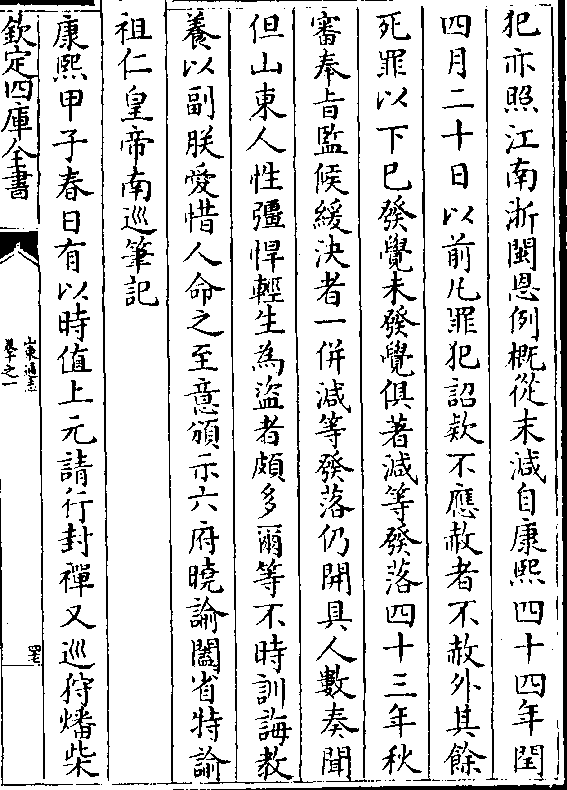 犯亦照江南浙閩恩例概從末減自康熙四十四年閏
四月二十日以前凡罪犯詔欵不應赦者不赦外其餘
死罪以下已發覺未發覺俱著減等發落四十三年秋
審奉㫖監候緩決者一併減等發落仍開具人數奏聞
但山東人性彊悍輕生為盜者頗多爾等不時訓誨教
養以副朕愛惜人命之至意頒示六府曉諭闔省特諭
祖仁皇帝南巡筆記
康熙甲子春日有以時值上元請行封禪又巡狩燔柴
欽定四庫全書
山東通志
卷一之一